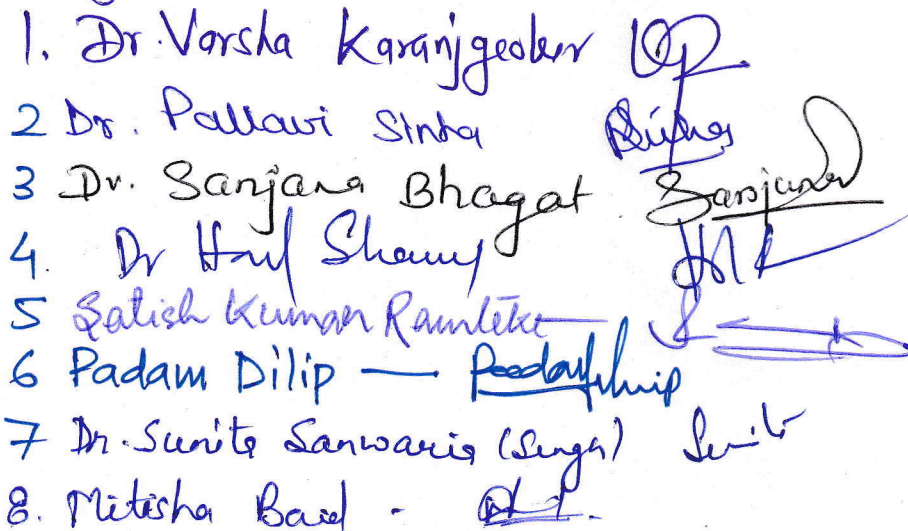 1. Dr. Varsha Karanjgeoker
2 Dr. Pallavi Sinha Sinha
3 Dr. Sanjana Bhagat Sanjana
4. Dr
5 Satish Kumar Ramteke
6 Padam Dilip —
7 Dr. Sunita Sanwaria (Singh) Sunita
8. Mitisha Baid -